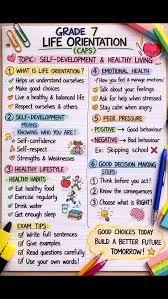 GRADE 7
LIFE ORIENTATION
(CAPS)
TOPIC: SELF-DEVELOPMENT & HEALTHY LIVING
1 WHAT IS LIFE ORIENTATION?
Understand ourselves
Make good choices
Live a healthy & balanced life
Respect ourselves & others
2 SELF-DEVELOPMENT MEANS
KNOWING WHO YOU ARE!
Self-Confidence
Self-Respect
Strengths & Weaknesses
3 HEALTHY LIFESTYLE
HEALTHY HABITS
Eat healthy food
Exercise regularly
Drink water
Get enough sleep
EXAM TIPS:
Write full sentences
Give examples
Read questions carefully
Use your own words!
4 EMOTIONAL HEALTH
How you feel & manage emotions!
Talk about your feelings
Ask for help when stressed
Stay calm when angry
5 PEER PRESSURE
POSITIVE → Good behaviour
NEGATIVE → Bad behaviour
(Ex: Skipping to Smoking)
6 GOOD DECISION MAKING STEPS
Think before you act!
Know the consequences
Choose what is right
GOOD CHOICES TODAY
BUILD A BETTER FUTURE
TOMORROW!